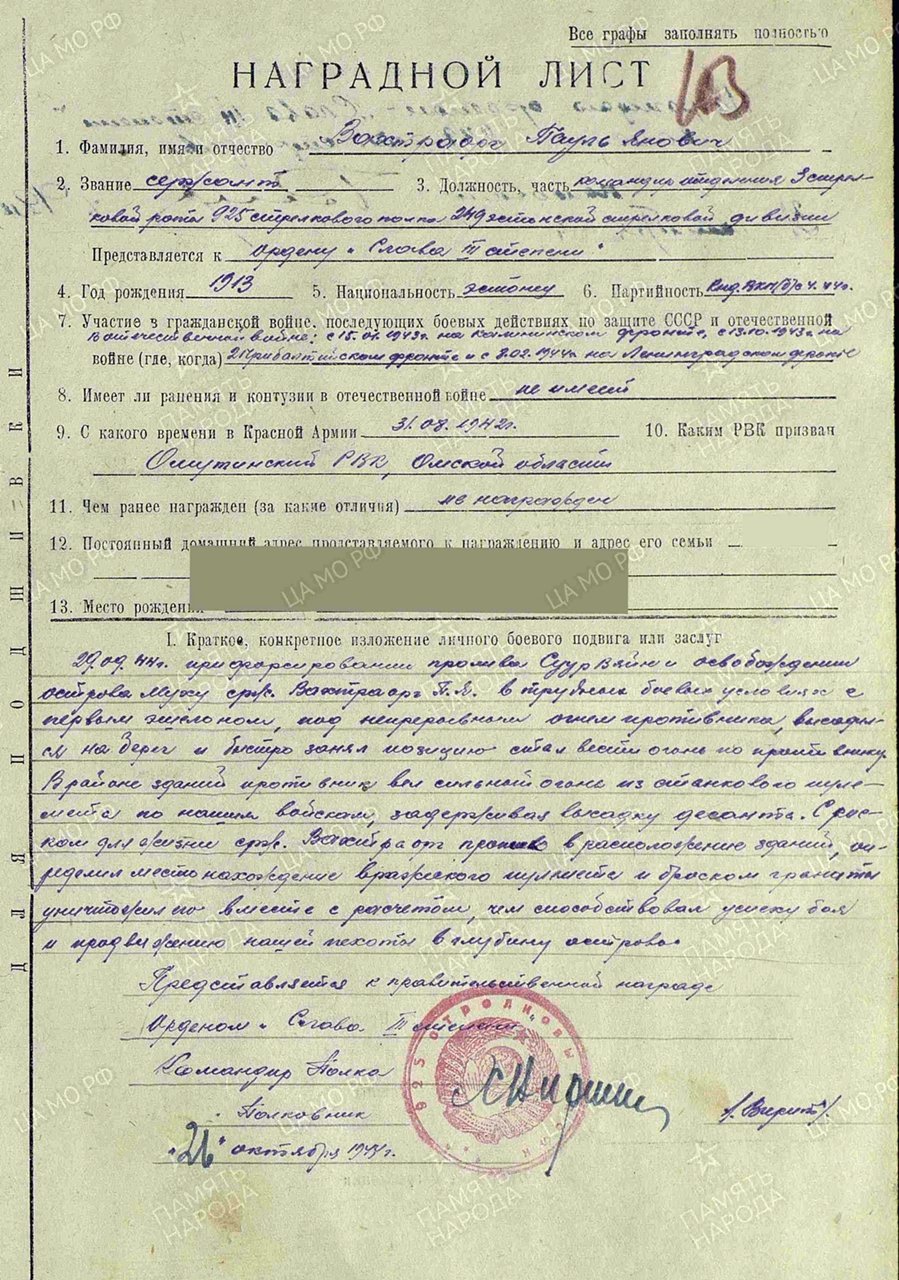 Все графы заполнять полностью
НАГРАДНОЙ ЛИСТ
1. Фамилия, имя и отчество Вахтраорг Пауль Янович
2. Звание сержант 3. Должность, часть командир отделения 3 стрел-
ковой роты 925 стрелкового полка 249 эстонской стрелковой дивизии
Представляется к ордену "Слава III степени"
4. Год рождения 1913 5. Национальность эстонец 6. Партийность Кнд. ВКП(б) с 4.44г.
7. Участие в гражданской войне, последующих боевых действиях по защите СССР и отечественной
В отечественной войне; с 15.07.1943г. на Калининском фронте, с 13.10.1943г. на
войне (где, когда) 2 Прибалтийском фронте и с 8.02.1944г. на Ленинградском фронте
8. Имеет ли ранения и контузии в отечественной войне не имеет
9. С какого времени в Красной Армии 31.08.1942г. 10. Каким РВК призван
Омутинский РВК, Омской области
11. Чем ранее награжден (за какие отличия) не награжден
12. Постоянный домашний адрес представляемого к награждению и адрес его семьи
13. Место рождени
I. Краткое, конкретное изложение личного боевого подвига или заслуг
29.09.44г. при форсировании пролива Суур Вяйн и освобождении
острова Муху срж. Вахтраорг П.Я. в трудных боевых условиях с
первым эшелоном, под непрерывным огнем противника, высадил-
ся на берег и быстро занял позицию стал вести огонь по противнику.
В районе зданий противник вел сильный огонь из станкового пуле-
мета по нашим войскам, задерживая высадку десанта. С рис-
ком для жизни срж. Вахтраорг в расположение зданий, оп-
ределил местонахождение вражеского пулемета и броском гранаты
уничтожил его вместе с расчетом, чем способствовал успеху боя
и продвижению нашей пехоты в глубину острова.
Представляется к правительственной награде
Орденом "Слава III степени"
Командир Полка
Полковник /Вирит/.
"26" октября 1944г.
925 СТРЕЛКОВЫЙ
ДЛЯ ПОДШИВКИ
ЦА МО РФ
ПАМЯТЬ НАРОДА